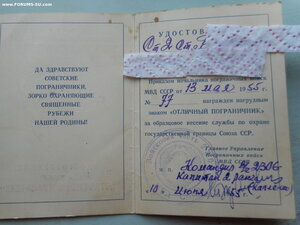 www.FORUMS-SU.com
ДА ЗДРАВСТВУЮТ
СОВЕТСКИЕ
ПОГРАНИЧНИКИ,
ЗОРКО ОХРАНЯЮЩИЕ
СВЯЩЕННЫЕ
РУБЕЖИ
НАШЕЙ РОДИНЫ!
УДОСТО
Ст. 2 Ст.
Приказом начальника пограничных войск
МВД СССР от 13 мая 1955 г.
№ 77 награжден нагрудным
знаком «ОТЛИЧНЫЙ ПОГРАНИЧНИК»
за образцовое несение службы по охране
государственной границы Союза ССР.
Главное Управление
Пограничных войск
МВД СССР
М. П.
Командир 2306
Капитан 2 ранга
10 Июня 55 г.